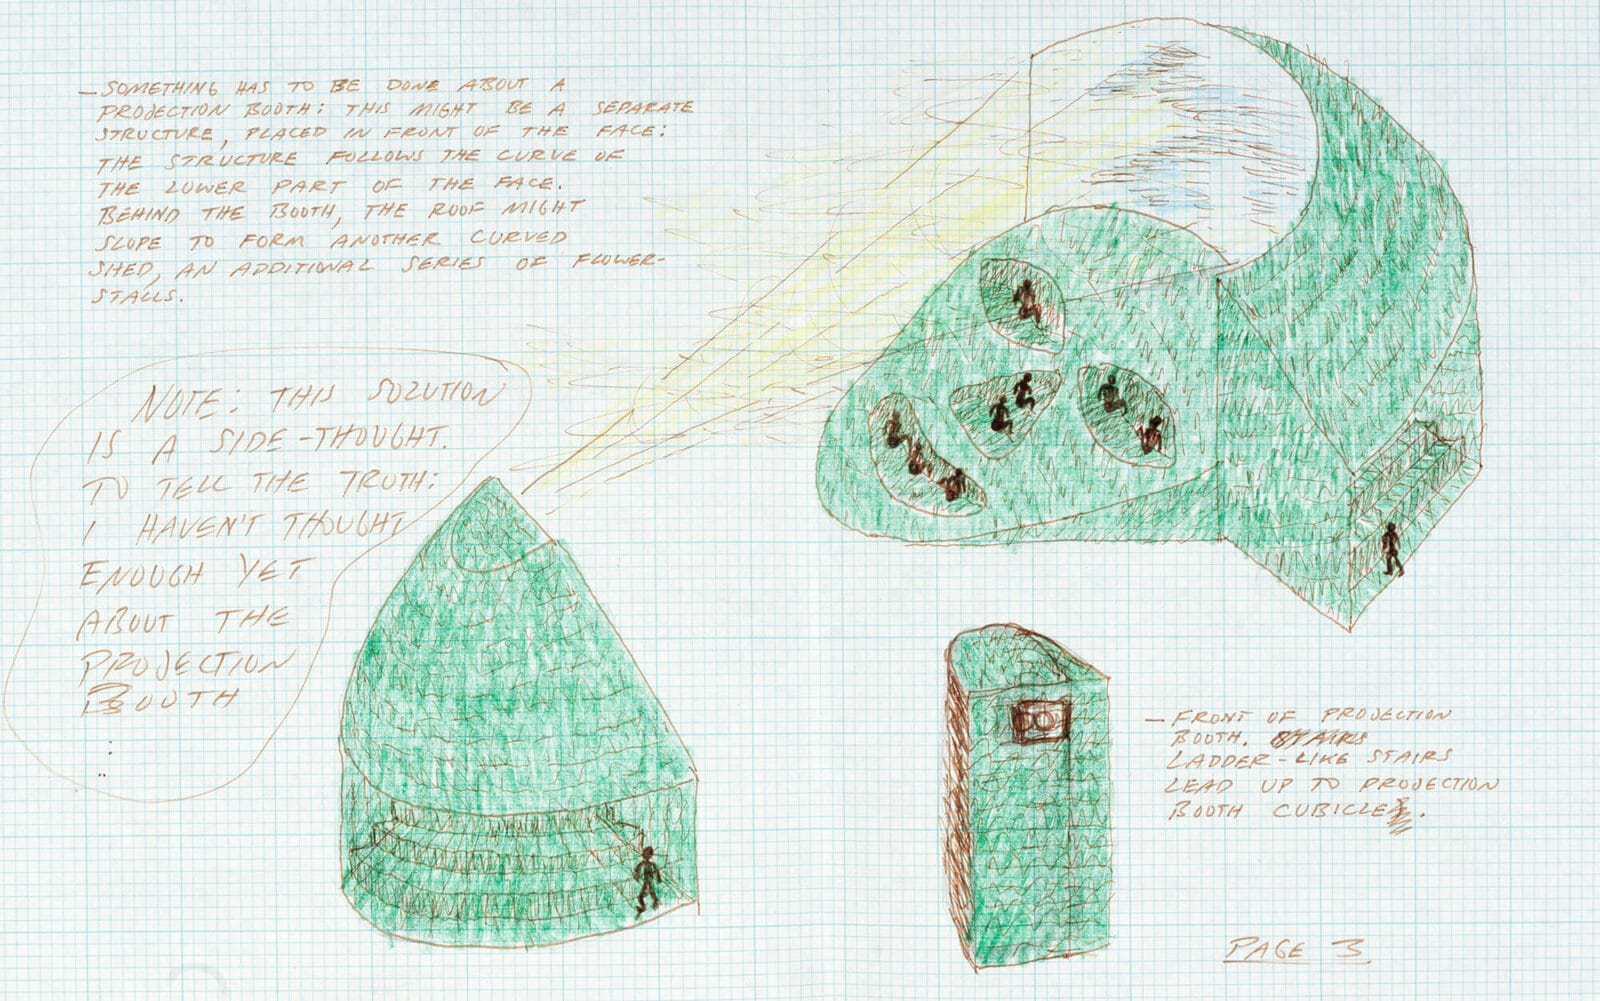 — SOMETHING HAS TO BE DONE ABOUT A
PROJECTION BOOTH: THIS MIGHT BE A SEPARATE
STRUCTURE, PLACED IN FRONT OF THE FACE:
THE STRUCTURE FOLLOWS THE CURVE OF
THE LOWER PART OF THE FACE.
BEHIND THE BOOTH, THE ROOF MIGHT
SLOPE TO FORM ANOTHER CURVED
SHED, AN ADDITIONAL SERIES OF FLOWER-
STALLS.
NOTE: THIS SOLUTION
IS A SIDE-THOUGHT.
TO TELL THE TRUTH:
I HAVEN'T THOUGHT
ENOUGH YET
ABOUT THE
PROJECTION
BOOTH
...
— FRONT OF PROJECTION
BOOTH. STAIRS
LADDER-LIKE STAIRS
LEAD UP TO PROJECTION
BOOTH CUBICLE.
PAGE 3